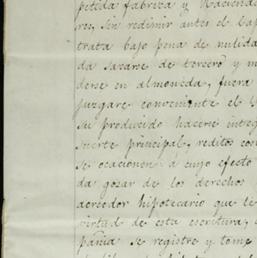 petida fabrica y Hacienda
res, sin redimir antes el Cap
trata bajo pena de nulidad
da sacarse de tercero y
derse en almoneda, fuera
juzgare conveniente el
su producido hacerse
suerte principal, reditos con
se ocacionen a cuyo efecto
da gozar de los derechos
acreedor hipotecario que le
virtud de esta escritura,
pañia se registre y tome